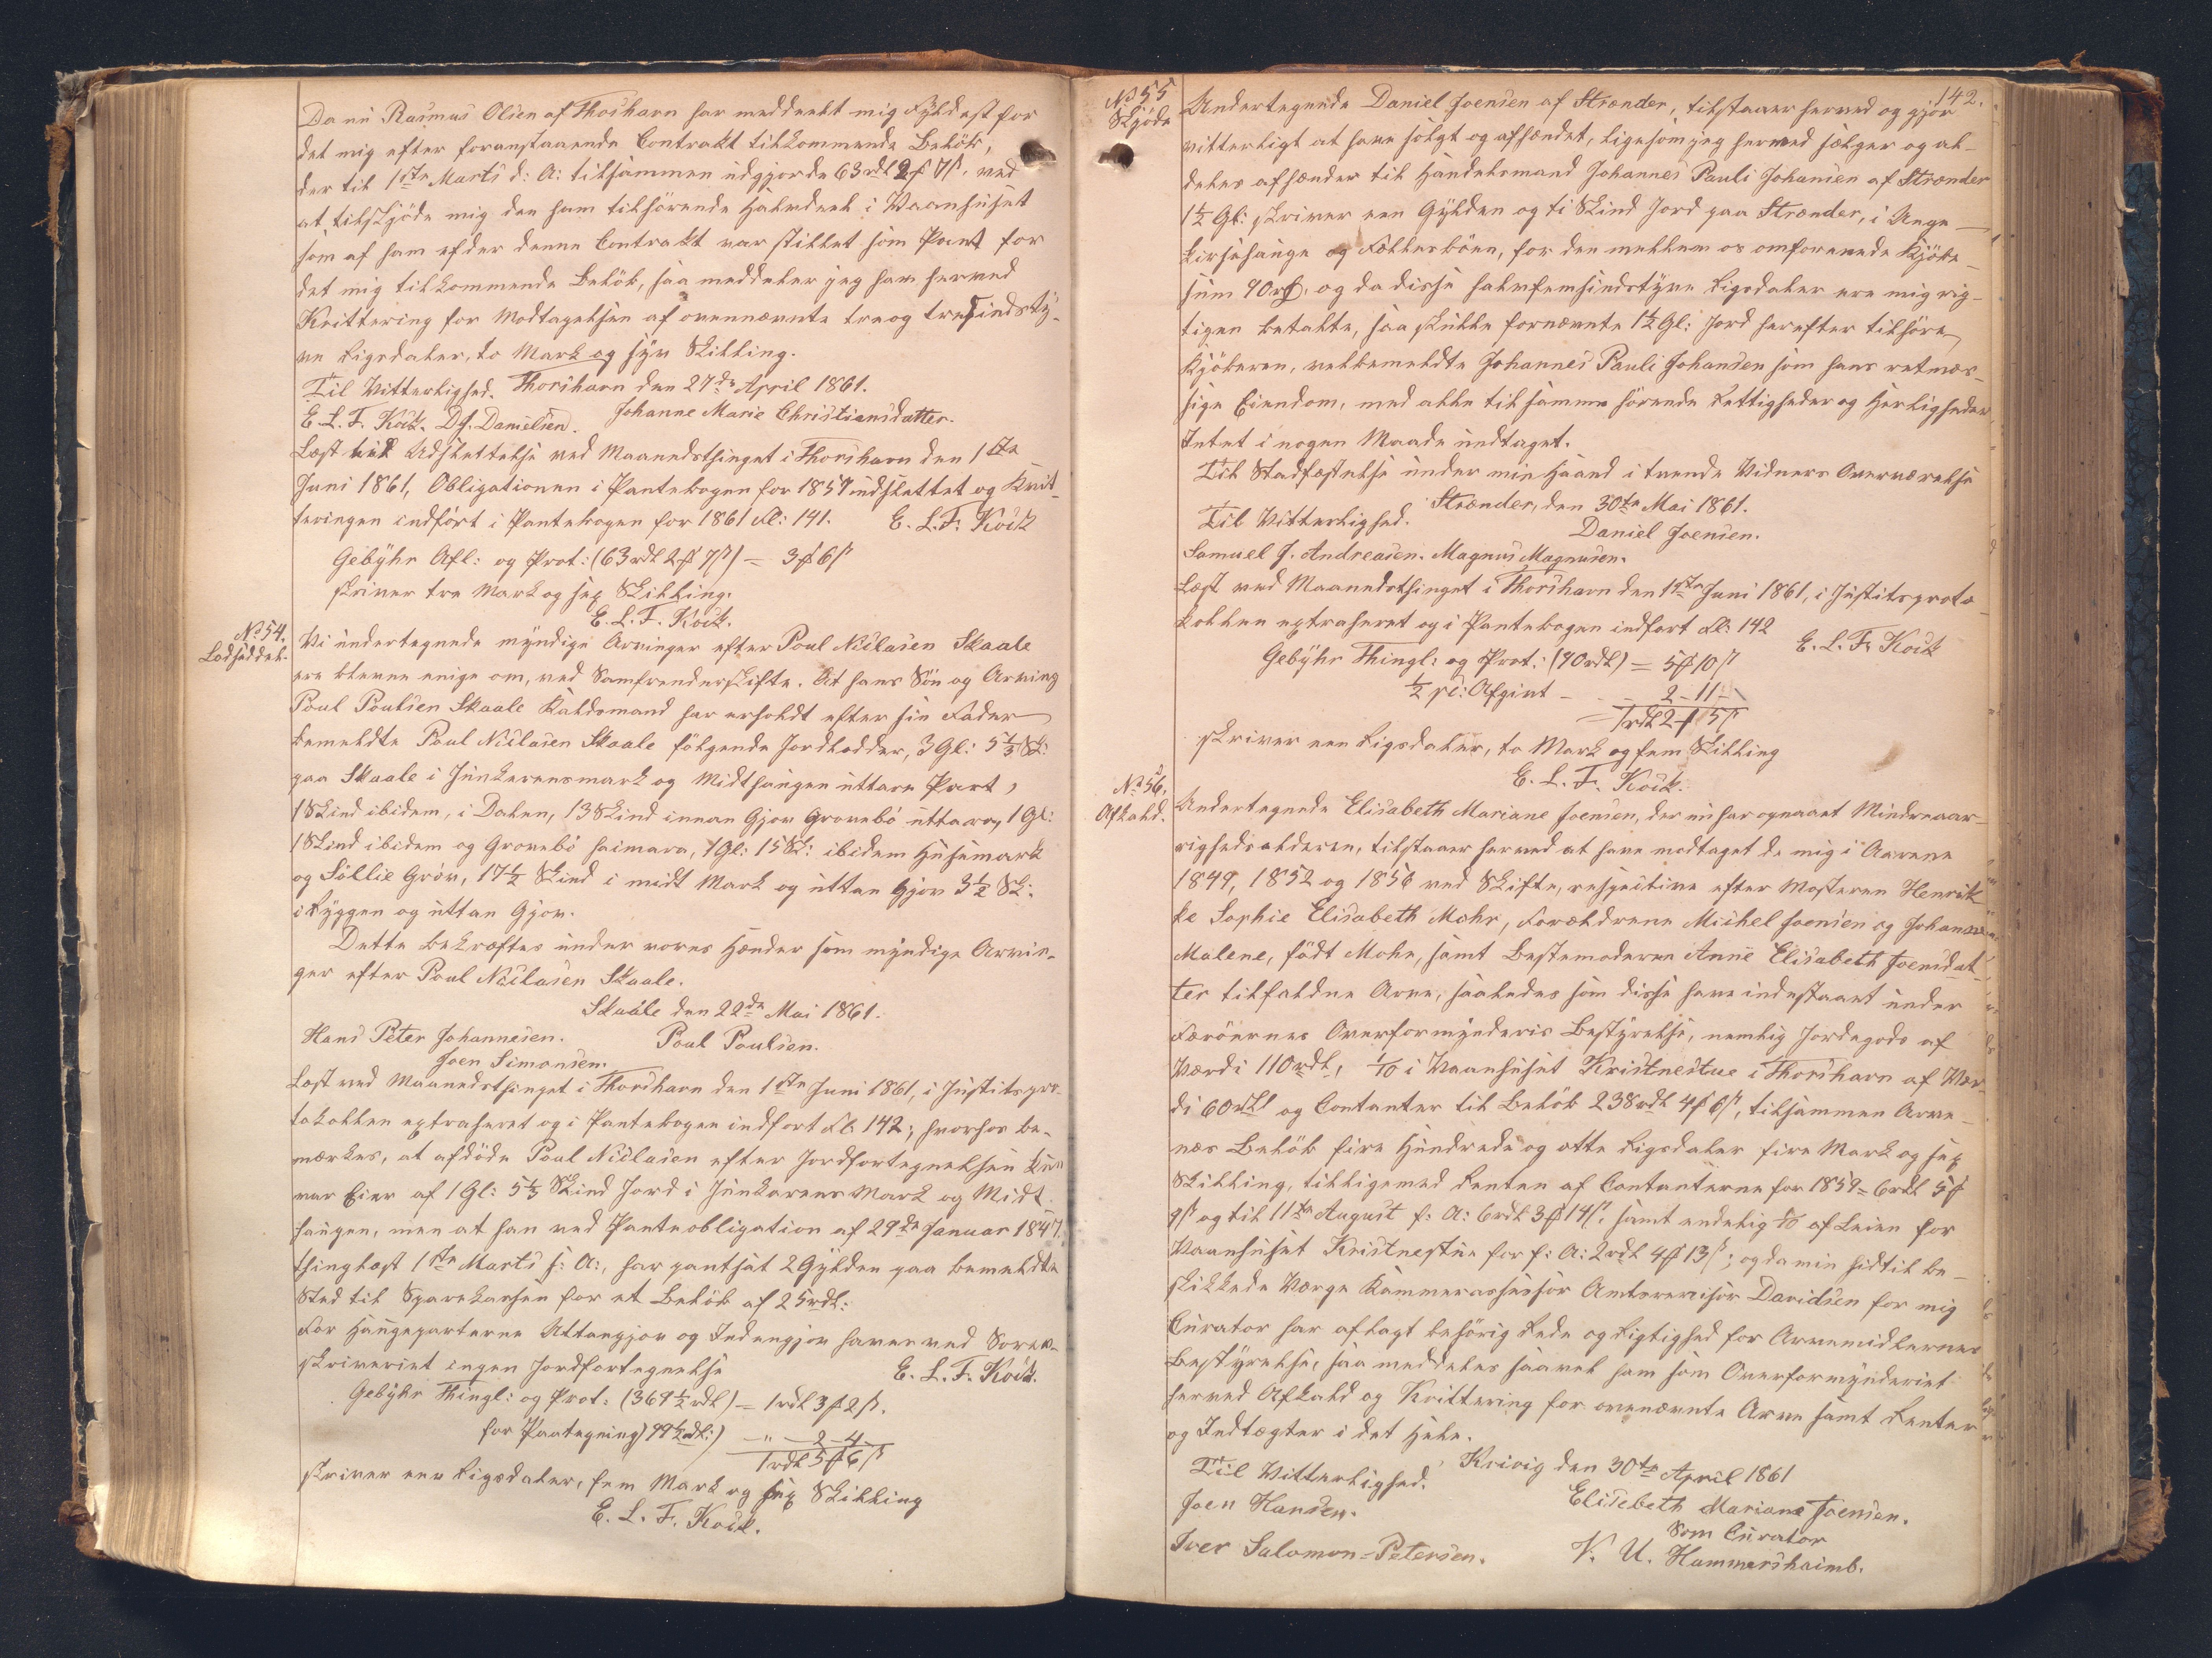 Da nu Rasmus Olsen af Thorshavn har meddeelt mig Fyldest for
det mig efter foranstaaende Contrakt tilkommende Beløb,
der til 1ste Marts d: A: tilsammen udgjorde 63rdl 2ℳ 7ß, ved
at tilskjöde mig den ham tilhörende Halvdeel i Vaanhuset
som af ham efter denne Contrakt var stillet som Pant for
det mig tilkommende Belöb, saa meddeler jeg ham herved
Kvittering for Modtagelsen af ovennævnte tre og tresindsty-
ve Rigsdaler, to Mark og syv Skilling.
Til Vitterlighed. Thorshavn den 27de April 1861.
E. L. F. Koch. D. J. Danielsen. Johanne Marie Christiansdatter.
Læst til Udslettelse ved Maanedsthinget i Thorshavn den 1ste
Juni 1861, Obligationen i Pantebogen for 1857 udslettet og Kvit-
teringen indfört i Pantebogen for 1861 Fl: 141. E. L. F. Koch
Gebyhr Afl: og Prot: (63rdl 2ℳ 7ß) = 3ℳ 6ß
skriver tre Mark og sex Skilling.
E. L. F. Koch.
No 54.
Lodseddel.
Vi undertegnede myndige Arvinger efter Poul Niclasen Skaale
ere blevne enige om, ved Samfrenderskifte. At hans Sön og Arving
Poul Poulsen Skaale Kaldsmand har erholdt efter sin Fader
bemeldte Poul Niclasen Skaale fölgende Jordlodder, 3 Gl: 5 1/3 Sk:
paa Skaale i Junkerensmark og Midthaugen uttare Part,
1 Skind ibidem, i Dalen, 13 Skind innan Gjov Gronebö uttara, 1 Gl:
1 Skind ibidem og Gronebö haimara, 1 Gl: 15 Sk: ibidem Husumark
og Söllie Gröv, 17½ Skind i midt Mark og uttan Gjov 3½ Sk:
i Ryggen og uttan Gjov.
Dette bekræftes under vores Hænder som myndige Arvin-
ger efter Poul Niclasen Skaale.
Skaale den 22de Mai 1861.
Hans Peter Johannesen. Poul Poulsen.
Joen Simonsen.
Læst ved Maanedsthinget i Thorshavn den 1ste Juni 1861, i Justitspro-
tokollen extraheret og i Pantebogen indfort Fl. 142; hvorhos be-
mærkes, at afdöde Poul Niclasen efter Jordfortegnelsen kun
var Eier af 1 Gl: 5 1/3 Skind Jord i Junkarens Mark og Midt-
haugen, men at han ved Panteobligation af 29de Januar 1847,
thinglæst 1ste Marts s: A:, har pantsat 2 Gylden paa bemeldte
Sted til Sparekassen for et Belöb af 25rdl:
For Haugeparterne Uttangjov og Indengjov haves ved Soren-
skriveriet ingen Jordfortegnelse E. L. F. Koch.
Gebyhr Thingl: og Prot: (369½rdl) = 1rdl 3ℳ 2ß.
for Paategning (99½rdl:) - " - 2 - 4
1rdl 5ℳ 6ß
skriver een Rigsdaler, fem Mark og sex Skilling
E. L. F. Koch.
142.
No 55
Skjöde
Undertegnede Daniel Joensen af Strænder, tilstaaer herved og gjör
vitterligt at have solgt og afhændet, ligesom jeg herved sælger og al-
deles afhænder til Handelsmand Johannes Pauli Johansen af Strænder
1½ Gl: skriver een Gylden og ti Skind Jord paa Strænder, i Unge
kirsehauge og Fællesböen, for den mellem os omforenede Kjöbe-
sum 90rdl, og da disse halvfemsindstyve Rigsdaler ere mig rig-
tigen betalte, saa skulle fornævnte 1½ Gl: Jord herefter tilhöre
Kjöberen, velbemeldte Johannes Pauli Johansen som hans retmæs-
sige Eiendom, med alle tilsammen hörende Rettigheder og Herligheder
Intet i nogen Maade undtaget.
Til Stadfæstelse under min Haand i tvende Vidners Overværelse
Strænder, den 30te Mai 1861.
Til Vitterlighed. Daniel Joensen.
Samuel J. Andreasen. Magnus Magnusen.
Læst ved Maanedsthinget i Thorshavn den 1ste Juni 1861, i Justitsproto-
kollen extraheret og i Pantebogen indfort Fl: 142
E. L. F. Koch
Gebyhr Thingl: og Prot: (90rdl) = 5ℳ 10ß
½ pC: Afgivt - 2 - 11 -
1rdl 2ℳ 5ß
skriver een Rigsdaler, to Mark og fem Skilling
E. L. F. Koch.
No 56.
Afkald.
Undertegnede Elisabeth Mariane Joensen, der nu har opnaaet Mindreaar-
righedsalderen, tilstaaer herved at have modtaget de mig i Aarene
1849, 1852 og 1856 ved Skifte, respective efter Mosteren Henrik-
ke Sophie Elisabeth Mohr, Forældrene Michel Joensen og Johanne
Malene, födt Mohr, samt Bestemoderen Anne Elisabeth Joensdat-
ter tilfaldne Arve, saaledes som disse have indestaaet under
Færöernes Overformynderis Bestyrelse, nemlig Jordegods af
Værdi 110rdl, 1/10 i Vaanhuset Kristnestue i Thorshavn af Vær-
di 60rdl og Contanter til Belöb 238rdl 4ℳ 6ß, tilsammen Arve-
nes Belöb fire Hundrede og otte Rigsdaler fire Mark og sex
Skilling, tilligemed Renten af Contanterne for 1859 = 6rdl 5ℳ
9ß og til 11te August f: A: 6rdl 3ℳ 14ß, samt endelig 1/10 af Leien for
Vaanhuset Kristnestue for f: A: 2rdl 4ℳ 13ß; og da min hidtil be-
skikkede Værge Kammerassessor Amtsrevisor Davidsen for mig
Curator har aflagt behörig Rede og Rigtighed for Arvemidlernes
Bestyrelse, saa meddeles saavel ham som Overformynderiet
herved Afkald og Kvittering for ovennævnte Arve samt Renter
og Indtægter i det Hele.
Kvivig den 30te April 1861
Til Vitterlighed. Elisebeth Mariane Joensen.
Joen Hansen. Som Curator
Iver Salomon-Petersen. V. U. Hammershaimb.